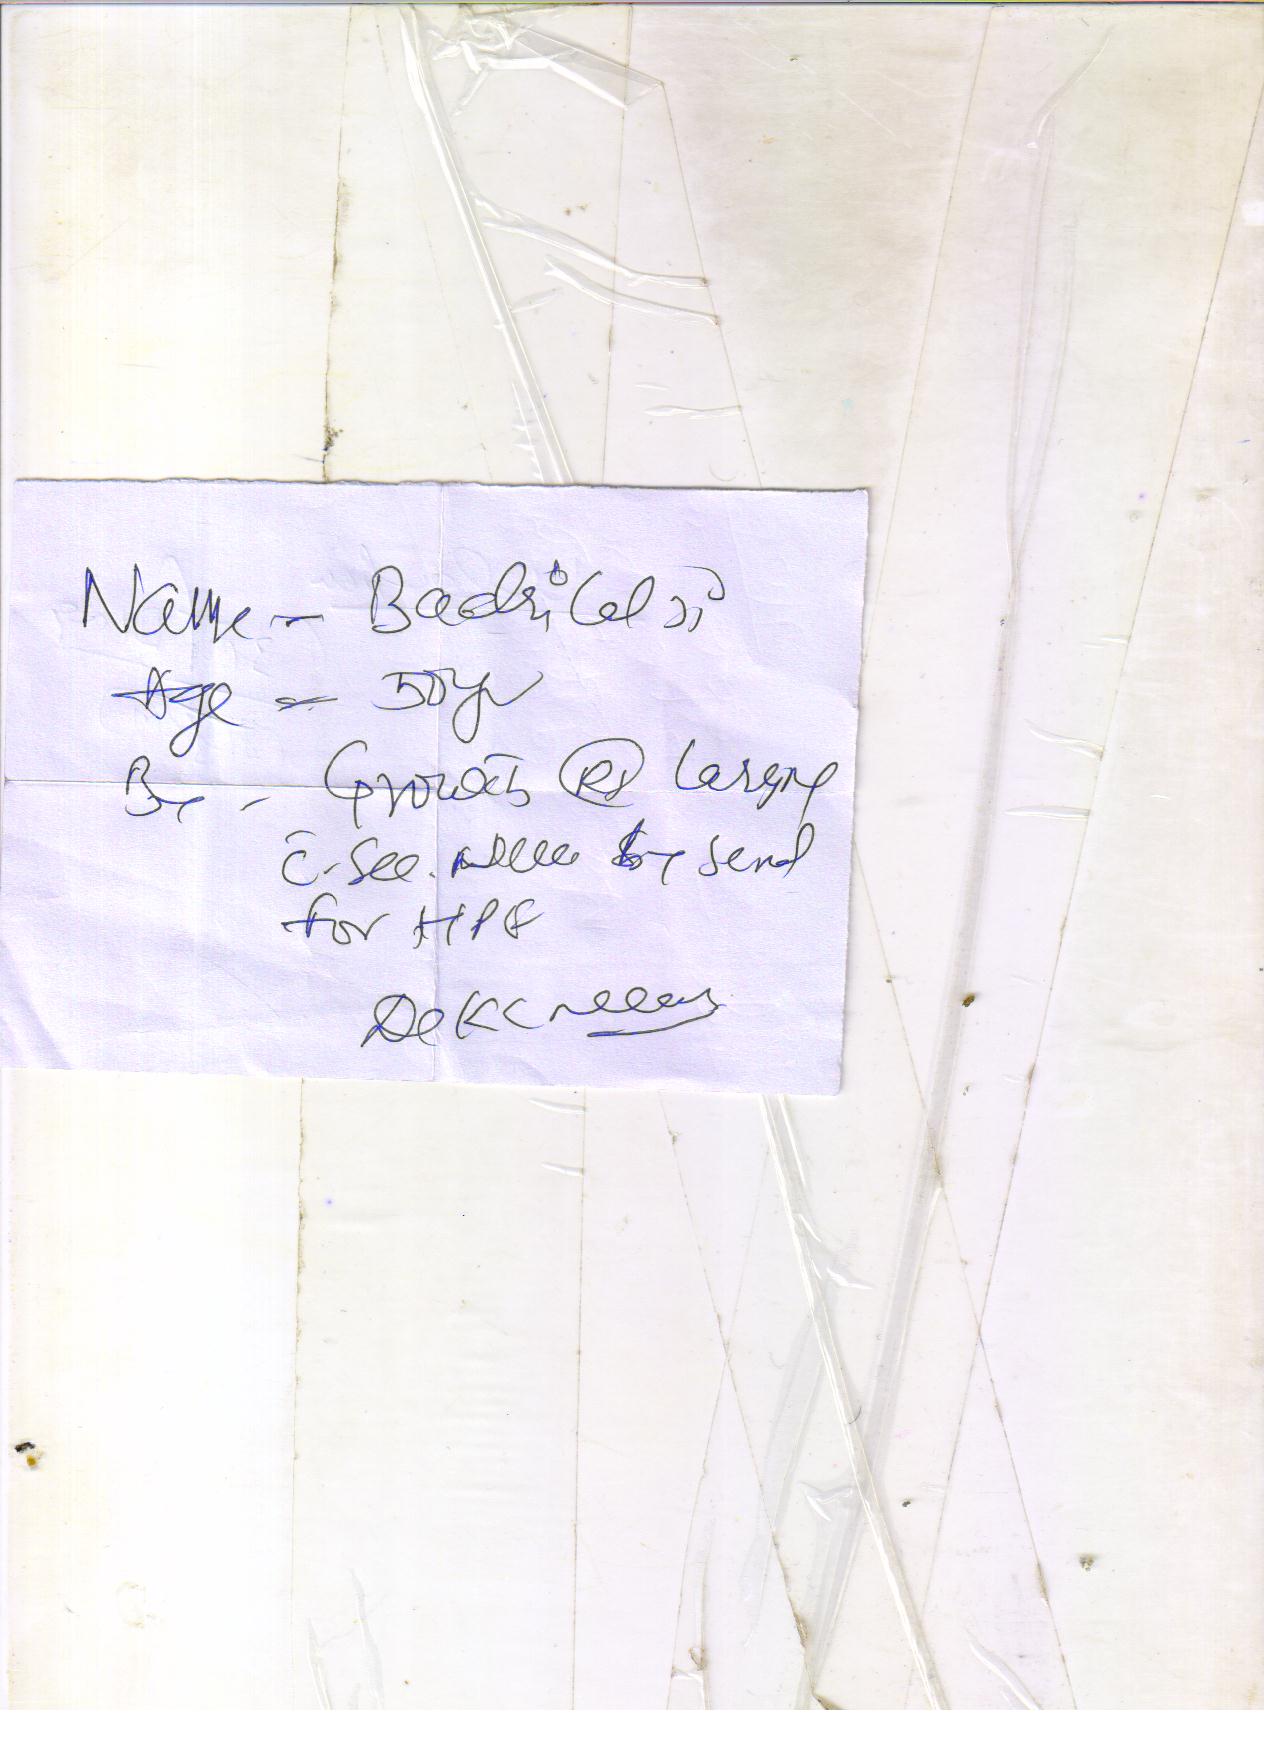 Name - Badri Lal Ji
Age - 50yr
Growth Rt Larynx
c̄ Sec. send
for HPE
Dr K C